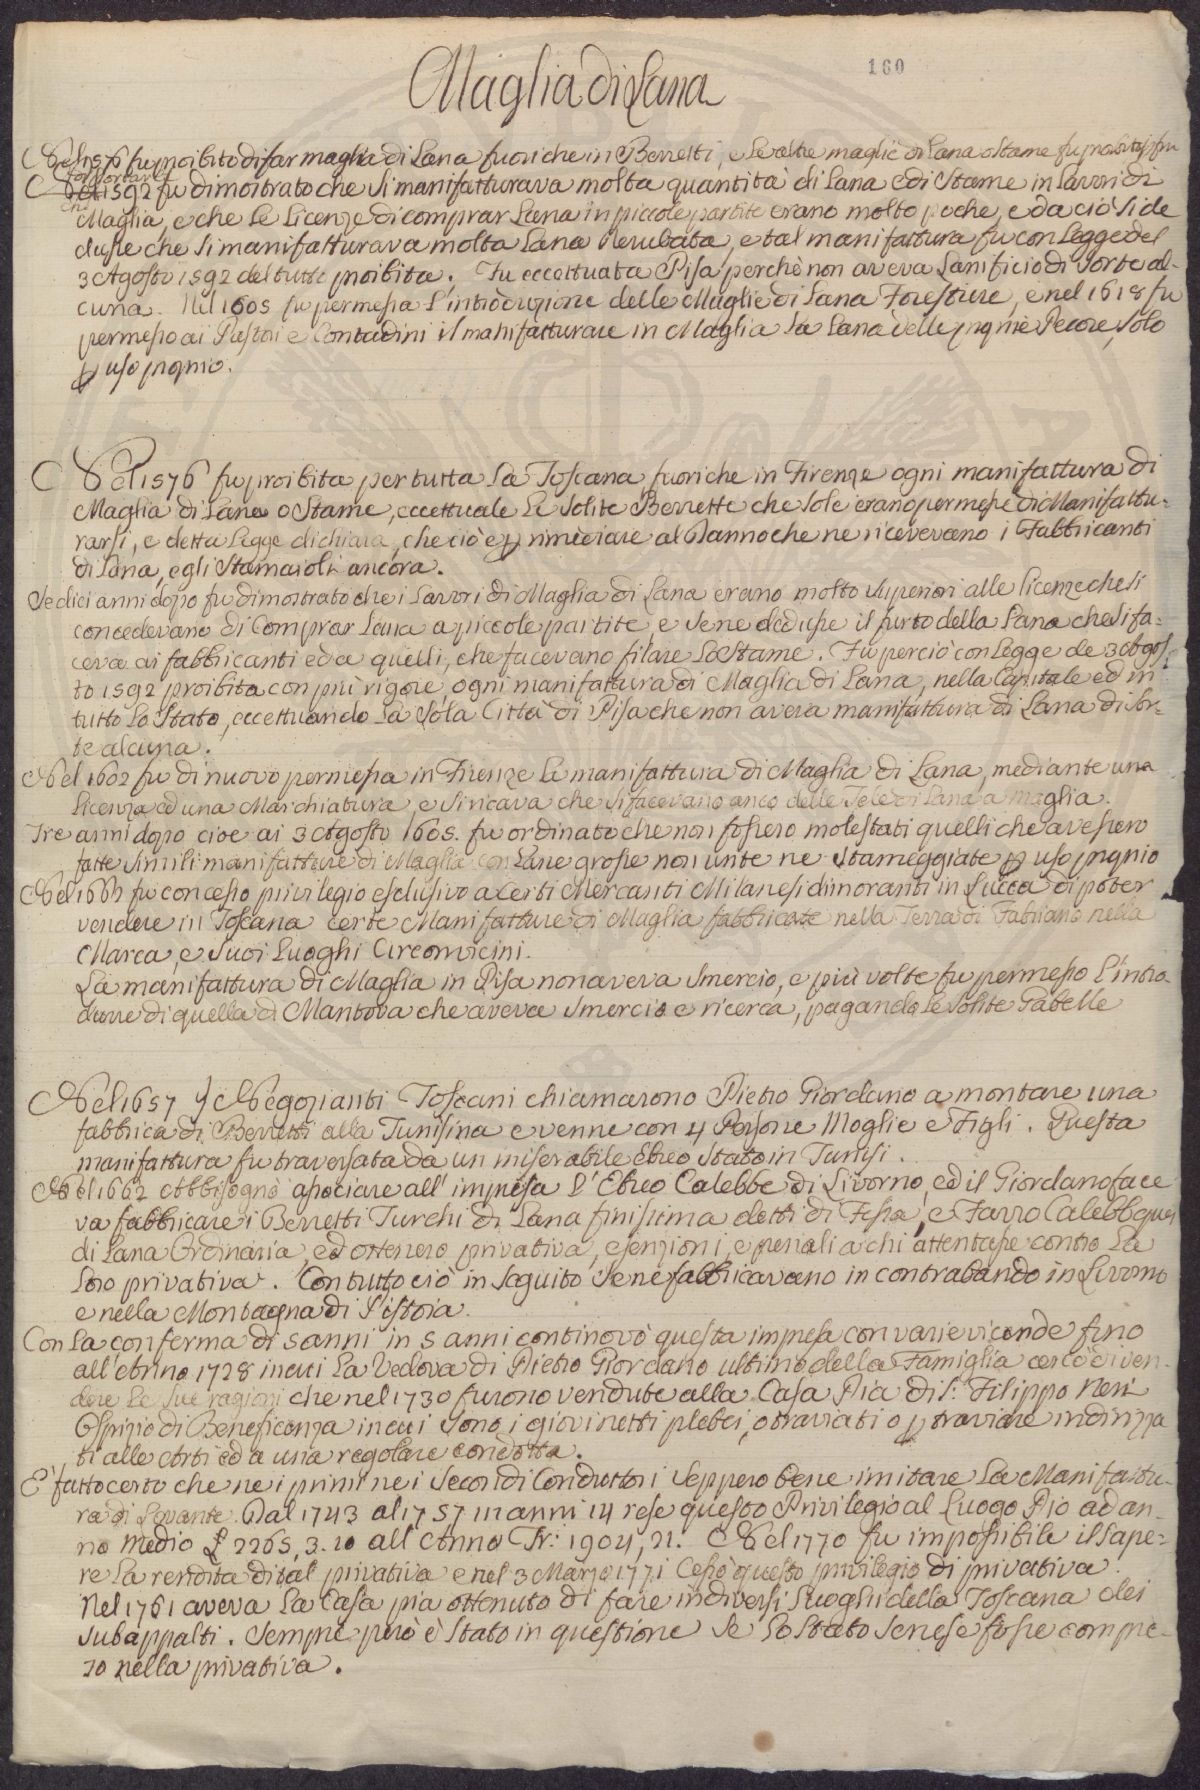 160
Maglia di Lana
Nel 1576 fu proibito di far maglia di Lana fuori che in Berretti, e le altre maglie di Lana o Stame fu proibito
Nel 1592 fu dimostrato che si manifatturava molta quantità di Lana e di Stame in Lavori di
Maglia, e che le Licenze di comprar Lana in piccole partite erano molto poche, e da ciò si de
dusse che si manifatturava molta Lana Rerubata, e tal manifattura fu con Legge del
3 Agosto 1592 del tutto proibita. Fu eccettuata Pisa perchè non aveva Lanificio di Sorte al-
cuna. Nel 1605 fu permessa l'introduzione delle Maglie di Lana Forestiere, e nel 1618 fu
permesso ai Pastori e Contadini il manifatturare in Maglia la Lana delle proprie Pecore, solo
p uso proprio.
Nel 1576 fu proibita per tutta la Toscana fuori che in Firenze ogni manifattura di
Maglia di Lana o Stame, eccettuate le Solite Berrette che Sole erano permesse di Manifattu-
rarsi, e detta Legge dichiara, che ciò è p rimediare al Danno che ne ricevevano i Fabbricanti
di Lana, e gli Stamaioli ancora.
Sedici anni dopo fu dimostrato che i Lavori di Maglia di Lana erano molto Superiori alle licenze che si
concedevano di Comprar Lana a piccole partite e Se ne dedusse il furto della Lana che si fa-
ceva ai fabbricanti ed a quelli, che facevano filare lo Stame. Fu perciò con Legge de 3 Agos
to 1592 proibita con più rigore ogni manifattura di Maglia di Lana, nella Capitale ed in
tutto lo Stato, eccettuando la Sola Città di Pisa che non aveva manifattura di Lana di Sor-
te alcuna.
Nel 1602 fu di nuovo permessa in Firenze la manifattura di Maglia di Lana, mediante una
Licenza ed una Marchiatura, e si ricava che si facevano anco delle Tele di Lana a maglia.
Tre anni dopo cioe ai 3 Agosto 1605. fu ordinato che non fossero molestati quelli che avessero
fatte Simili manifatture di Maglia con Lane grosse non unte ne Stameggiate p uso proprio
fu concesso privilegio esclusivo a Certi Mercanti Milanesi dimoranti in Lucca di poter
vendere in Toscana certe Manifatture di Maglia fabbricate nella Terra di Fabriano nella
Marca, e Suoi Luoghi Circonvicini.
La manifattura di Maglia in Pisa non aveva Smercio, e più volte fu permesso l'intro-
durre di quella di Mantova che aveva Smercio e ricerca, pagando le Solite Gabelle
Nel 1657 Negozianti Toscani chiamarono Pietro Giordano a montare una
fabbrica di Berretti alla Tunisina e venne con 4 Persone Moglie e Figli. Questa
manifattura fu traversata da un miserabile Ebreo Stato in Tunisi.
Nel 1662 Abbisognò associare all'impresa l'Ebreo Calebbe di Livorno, ed il Giordano face
va fabbricare i Berretti Turchi di Lana finissima detti di Fessa, e Calebbe quei
di Lana Ordinaria, ed ottenero privativa, esenzioni, e penali a chi attentasse contro la
loro privativa. Con tutto ciò in Seguito Se ne fabbricavano in contrabando in Livorno
e nella Montagna di Pistoia.
Con la conferma di 5 anni in 5 anni continovò questa impresa con varie vicende fino
all'Anno 1728 in cui la Vedova di Pietro Giordano ultimo della Famiglia cercò di ven-
dere le Sue ragioni che nel 1730 furono vendute alla Casa Pia di S. Filippo Neri
Ospizio di Beneficenza in cui Sono i giovinetti plebei, o traviati o p traviare indirizza
ti alle Arti ed a una regolare condotta.
E' fatto certo che ne i primi ne i Secondi Conduttori Seppero bene imitare la Manifattu-
ra di Levante. Dal 1743 al 1757 in anni 14 rese questo Privilegio al Luogo Pio ad an-
no medio £ 2265, 3. 10 all'Anno Fr: 1904, 21. Nel 1770 fu impossibile il Sape-
re la rendita di tal privativa e nel 3 Marzo 1771 Cessò questo privilegio di privativa.
Nel 1761 aveva la Casa pia ottenuto di fare in diversi Luoghi della Toscana dei
Subappalti. Sempre però è Stato in questione Se lo Stato Senese fosse compre-
so nella privativa.